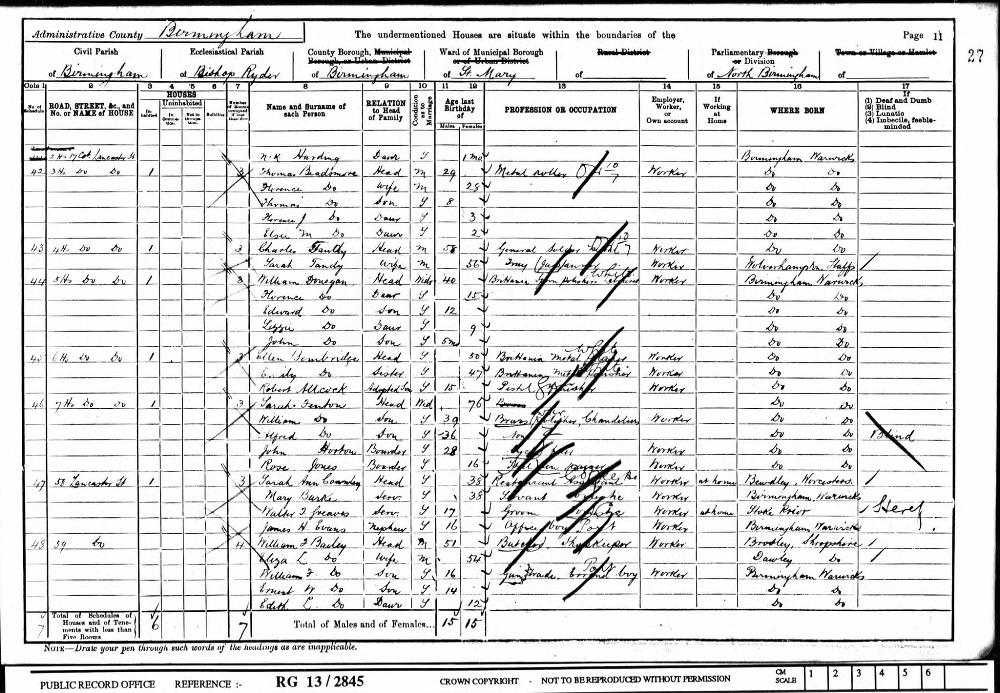 Administrative County Birmingham
The undermentioned Houses are situate within the boundaries of the
Page 11
27
Civil Parish
of Birmingham
Ecclesiastical Parish
of Bishop Ryder
County Borough, Municipal Borough, or Urban District
of Birmingham
Ward of Municipal Borough or of Urban District
of St. Mary
Rural District
of
Parliamentary Borough or Division
of North Birmingham
Town or Village or Hamlet
of
Cols 1 2 3 4 5 6 7 8 9 10 11 12 13 14 15 16 17
No. of Schedule
ROAD, STREET, &c., and No. or NAME of HOUSE
HOUSES
Inhabited
Uninhabited
In Occupation
Not in Occupation
Building
Number of Rooms occupied if less than five
Name and Surname of each Person
RELATION to Head of Family
Condition as to Marriage
Age last Birthday of
Males Females
PROFESSION OR OCCUPATION
Employer, Worker, or Own account
If Working at Home
WHERE BORN
If
(1) Deaf and Dumb
(2) Blind
(3) Lunatic
(4) Imbecile, feeble-minded
Lancaster St Harding Daur S 1 mo Birmingham Warwicks
42 3 Ho Do Do 1 3 Thomas Beadsmore Head M 29 Metal roller Worker Do Do
Florence Do Wife M 29 Do Do
Thomas Do Son S 8 Do Do
Florence J Do Daur S 3 Do Do
Elsie M Do Daur S 2 Do Do
43 4 Ho Do Do 1 3 Charles Tandy Head M 58 General Worker Do Do
Sarah Tandy Wife M 56 Tray Worker Wolverhampton Staffs
44 5 Ho Do Do 1 3 William Donegan Head Widr 40 Brittania Worker Birmingham Warwicks
Florence Do Daur S 15 Do Do
Edward Do Son S 12 Do Do
Lizzie Do Daur S 9 Do Do
John Do Son S 5m Do Do
45 6 H. Do Do 1 3 Ellen Head S 50 Brittania Metal Worker Do Do
Emily Do Sister S 47 Brittania Metal Polisher Worker Do Do
Robert Allcock Adopted Son S 15 Pistol Worker Do Do
46 7 Ho Do Do 1 3 Sarah Fenton Head Wid 76 Do Do
William Do Son S 39 Brass Polisher Chandeliers Worker Do Do
Alfred Do Son S 36 Do Do Blind
John Horton Boarder S 28 Worker Do Do
Rose Jones Boarder S 16 Worker Do Do
47 58 Lancaster St 1 3 Sarah Ann Head S 38 Restaurant Worker at home Bewdley Worcesters.
Mary Burke Serv. S 38 Servant Domestic Worker Birmingham, Warwicks
Walter T Greaves Serv. S 17 Groom Domestic Worker at home Stoke Prior
James H. Evans Nephew S 16 Office boy Worker Birmingham Warwicks
48 59 Do 4 William F Bailey Head M 51 Butcher, Shopkeeper Worker Broseley, Shropshire
Eliza L. Do Wife M 54 Dawley Do
William F Do Son S 16 Gun Trade, Errand boy Worker Birmingham Warwicks
Ernest W Do Son S 14 Do Do
Edith L. Do Daur S 12 Do Do
7 Total of Schedules of Houses and of Tenements with less than Five Rooms 6 7 Total of Males and Females... 15 15
NOTE—Draw your pen through such words of the headings as are inapplicable.
PUBLIC RECORD OFFICE REFERENCE :- RG 13/2845 CROWN COPYRIGHT - NOT TO BE REPRODUCED WITHOUT PERMISSION CM SCALE 1 2 3 4 5 6